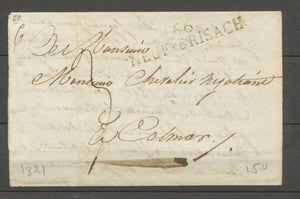 66
NEUF-BRISACH
Monsieur
Monsieur Chevalier négotiant
à Colmar
1821
150